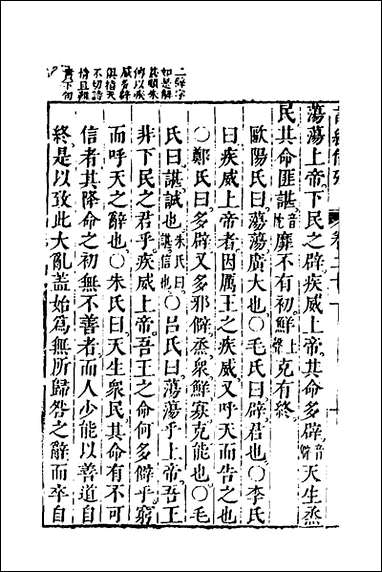 二辟字
如是解
甚順朱
傳以疾
威多辟
俱指天
不切詩
情且與
詩經
卷二十
蕩蕩上帝下民之辟疾威上帝其命多辟音僻天生烝
民其命匪諶音忱靡不有初鮮上聲克有終
歐陽氏曰蕩蕩廣大也〇毛氏曰辟君也〇李氏
曰疾威上帝者因厲王之疾威又呼天而告之也
〇鄭氏曰多辟又多邪僻烝衆鮮寡克能也〇毛
氏曰諶誠也朱氏曰諶信也〇呂氏曰蕩蕩乎上帝吾王
非下民之君乎疾威上帝吾王之命何多僻乎窮
而呼天之辭也〇朱氏曰天生衆民其命有不可
信者其降命之初無不善者而人少能以善道自
終是以致此大亂蓋始為無所歸咎之辭而卒自